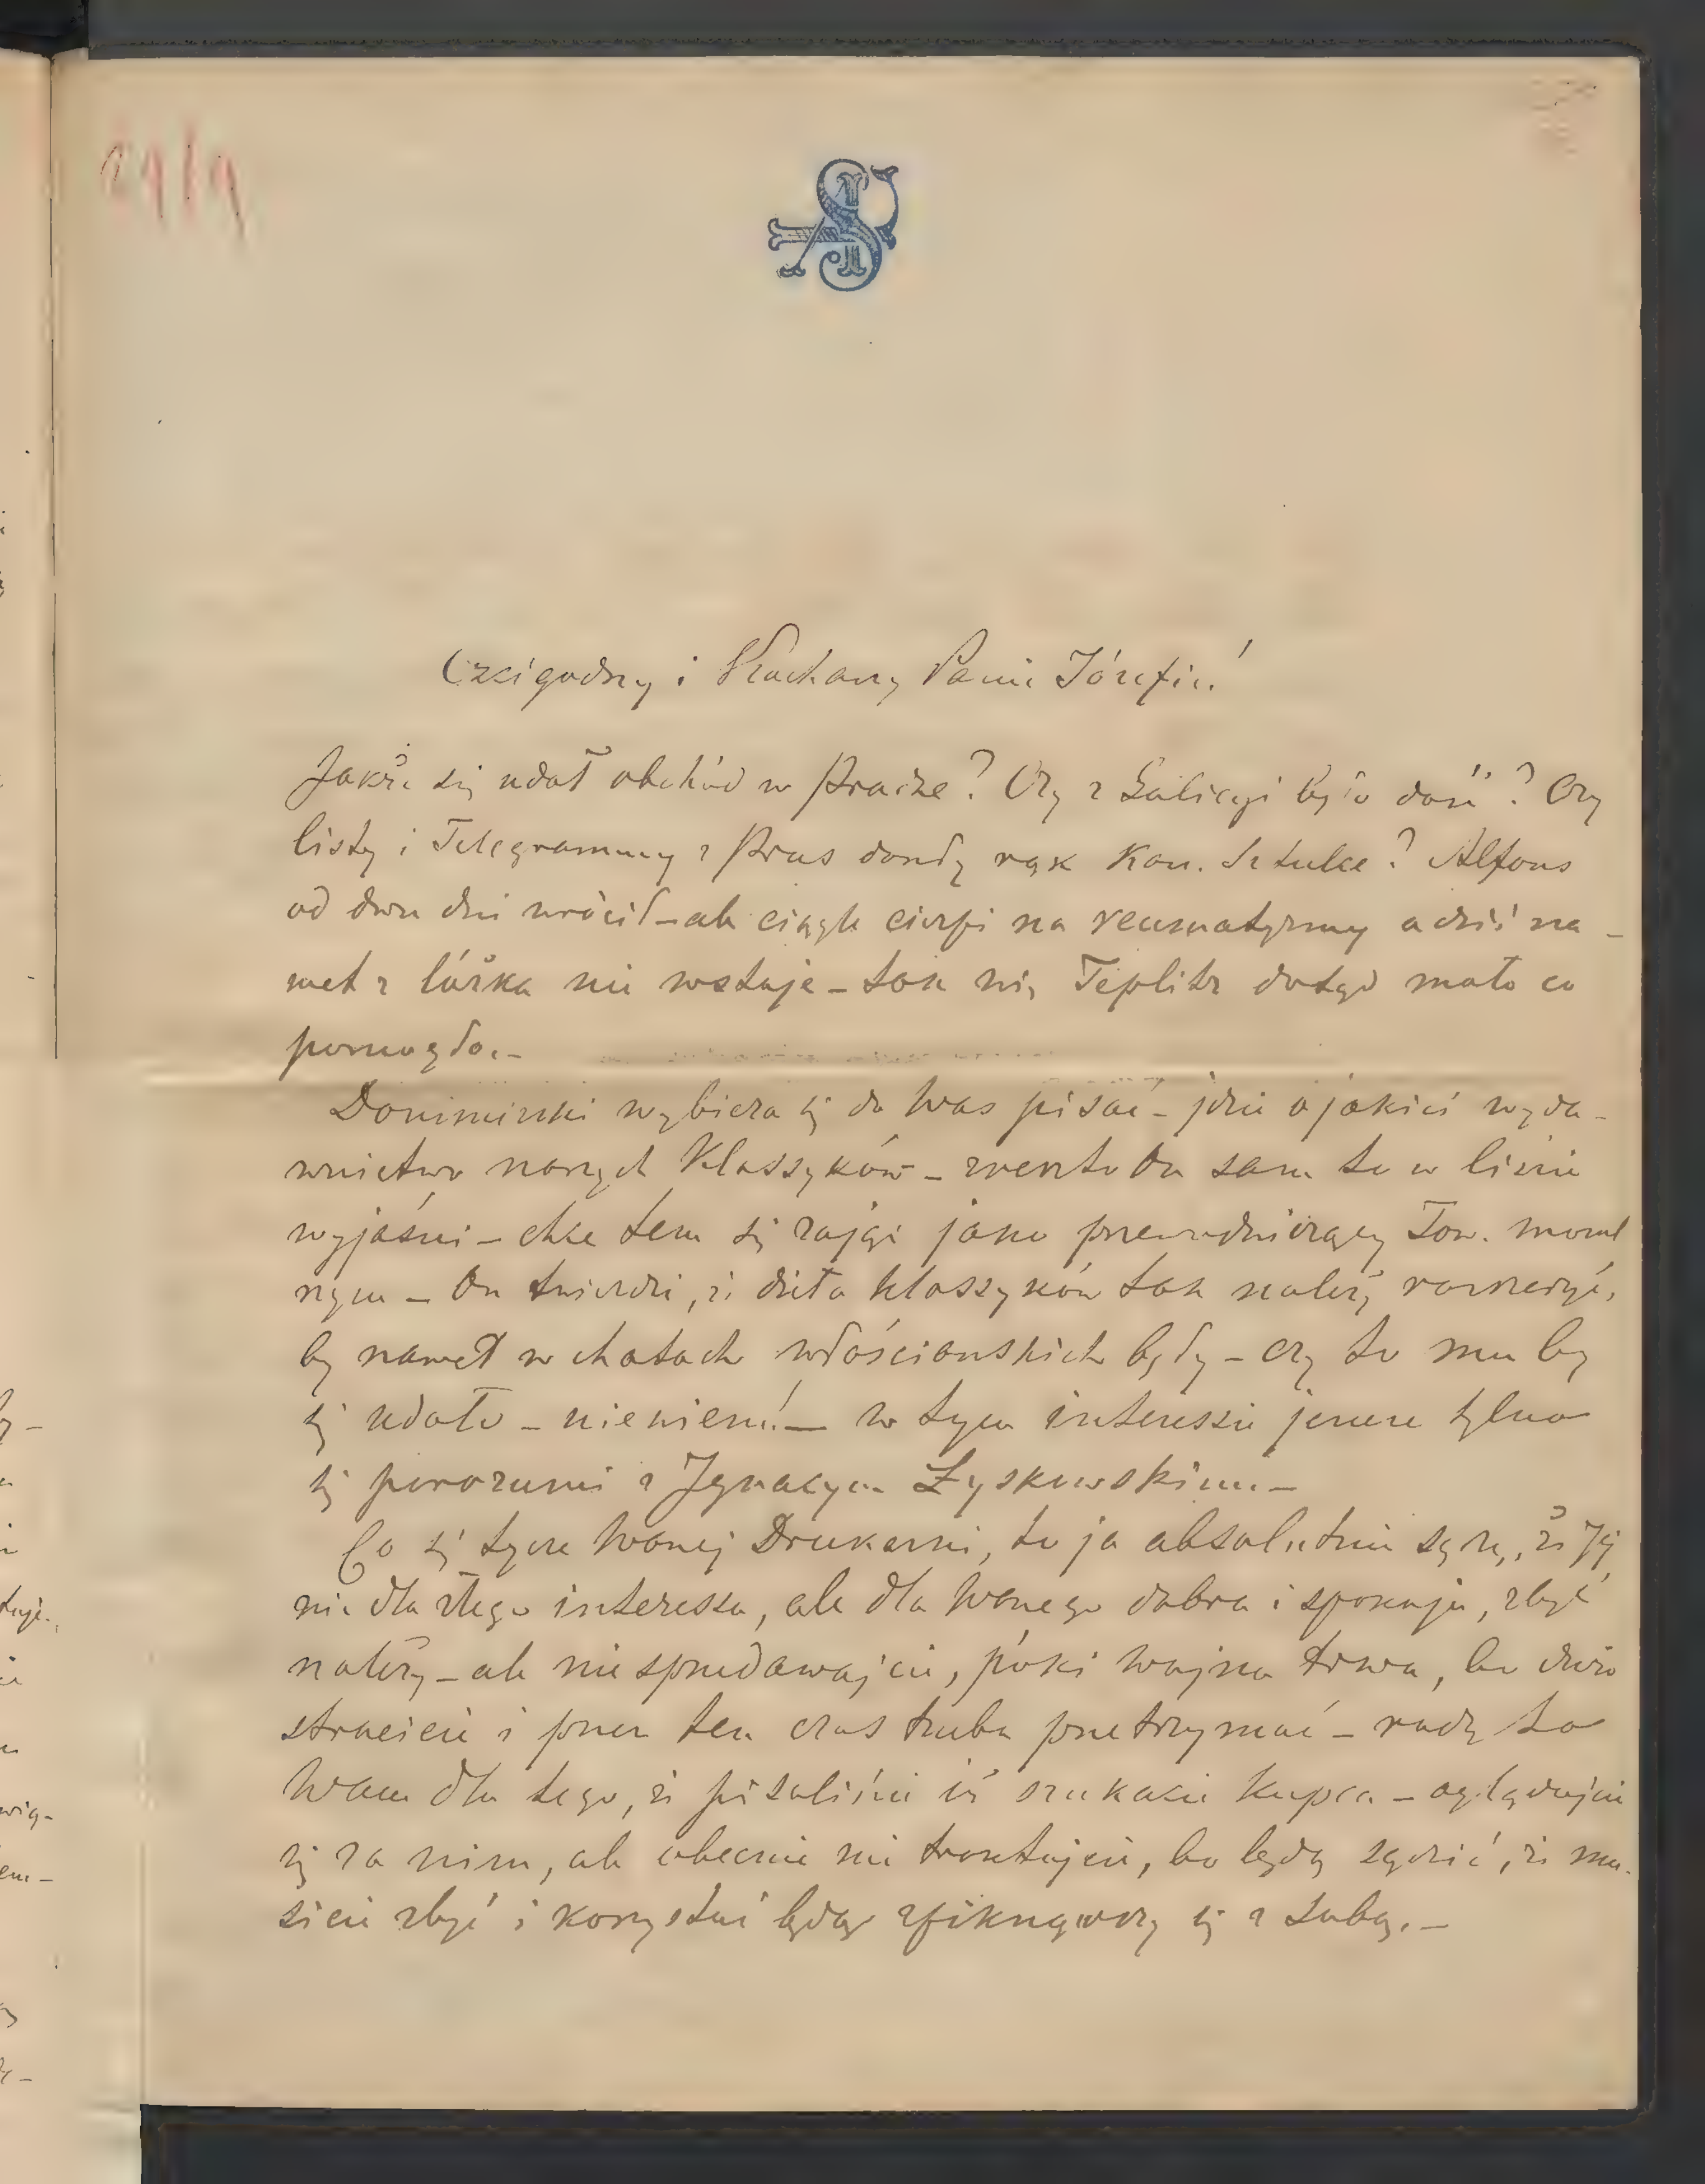 29/9
Czcigodny i Kochany Panie Józefie!
Jakże się udał obchód w Pradze? Czy z Galicyi było dość? Czy
listy i Telegrammy z Prus doszły rąk Kan. Sztulce? Alfons
od dwu dni wrócił – ale ciągle cierpi na reumatyzmy a dziś na–
wet z łóżka nie wstaje – tak więc Teplitz dotąd mało co
pomogło. –
Donimirski wybiera się do Was pisać – idzie o jakieś wyda–
wnictwo naszych Klassyków – zresztą On sam to w liście
wyjaśni – chce tem się zająć jako przewodniczący Tow. moral
nym – On twierdzi, że dzieła klassyków tak należy rozszerzyć,
by nawet w chatach włościańskich były – czy to mu by
się udało – niewiem! – w tym interessie jeszcze tylko
się porozumi z Ignacym Łyskowskim. –
Co się tycze Waszej Drukarni, to ja absolutnie sądzę, że Jej
nie dla złego interessu, ale dla Waszego dobra i spokoju, zbyć
należy – ale nie sprzedawajcie, póki wojna trwa, bo dużo
stracicie i przez ten czas trzeba przetrzymać – radzę to
Wam dla tego, że pisaliście iż szukacie kupca – oglądajcie
się za nim, ale obecnie nie traktujcie, bo będą sądzić, że mu–
sicie zbyć i korzystać będą